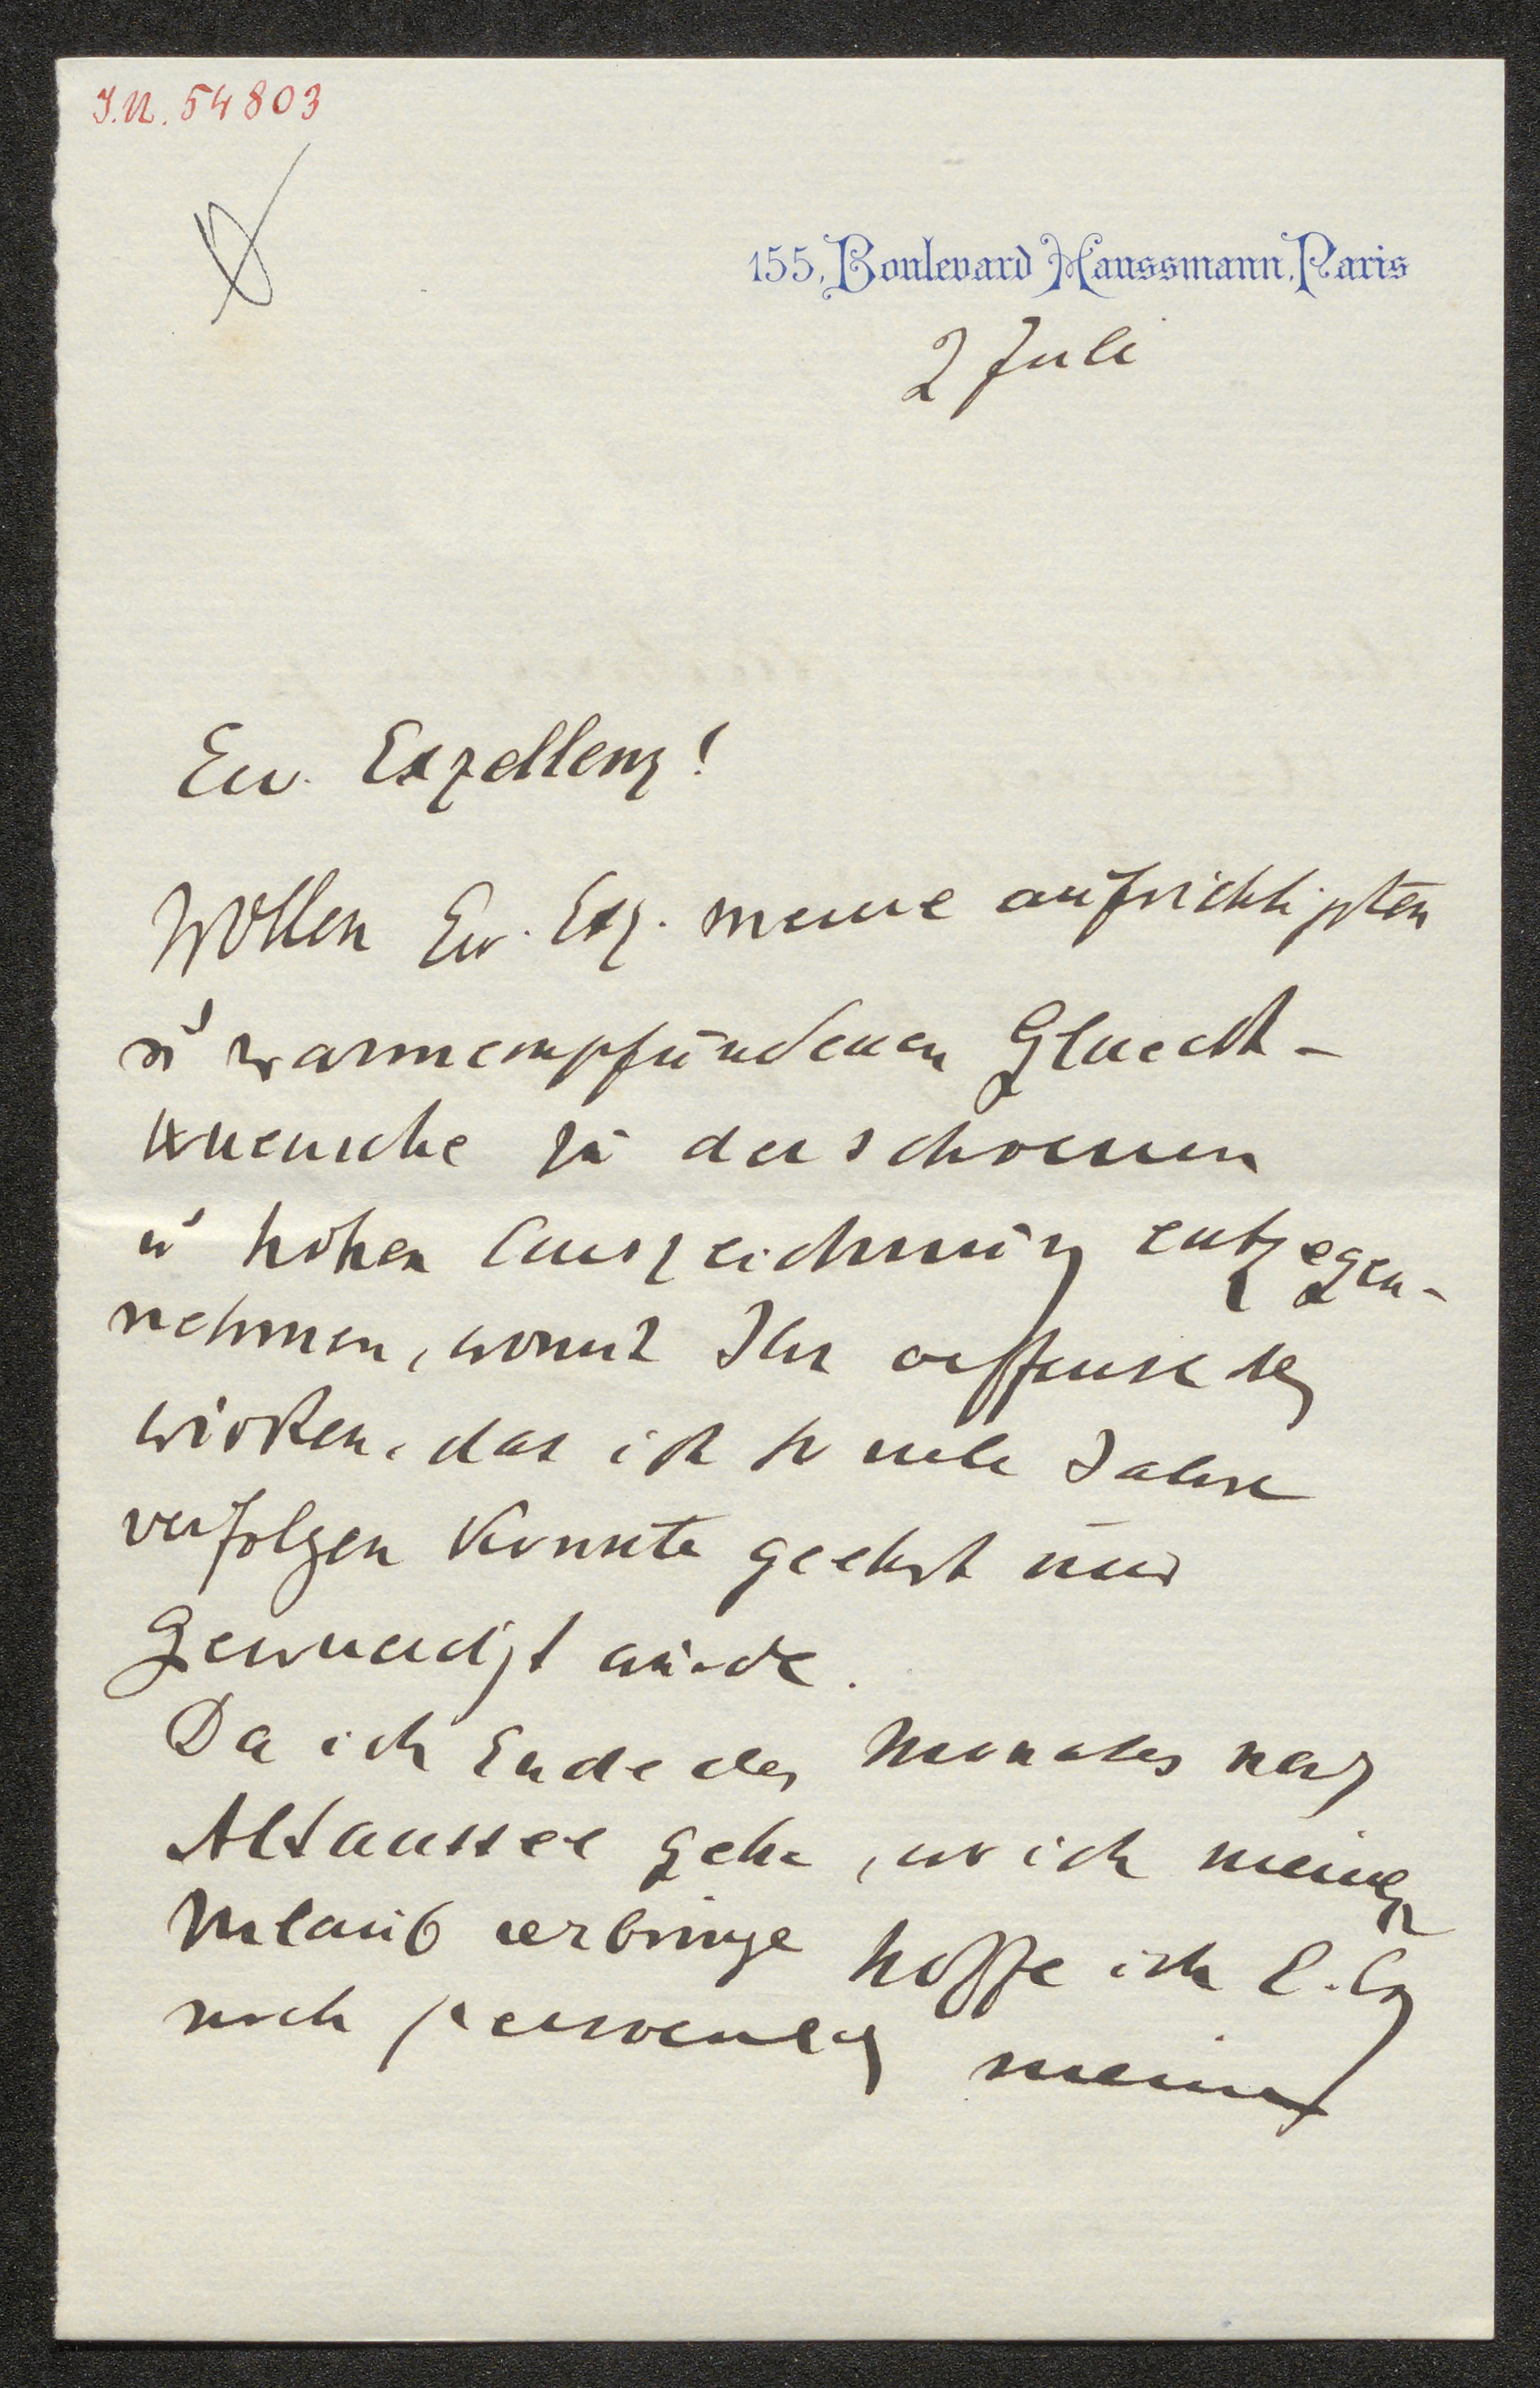 J.N. 54803
155, Boulevard Haussmann, Paris
2 Juli
Ew. Exzellenz!
Wollen Ew. Exz. meine aufrichtigsten
u warmempfundenen Glueck-
wuensche zu der schoenen
u hohen Auszeichnung entgegen-
nehmen, womit Ihr oeffentliches
wirken, das ich so viele Jahre
verfolgen konnte geehrt und
gewuerdigt wurde.
Da ich Ende des Monates nach
Altaussee gehe, wo ich meinen
Urlaub verbringe hoffe ich E. Ex
noch persoenlich meine